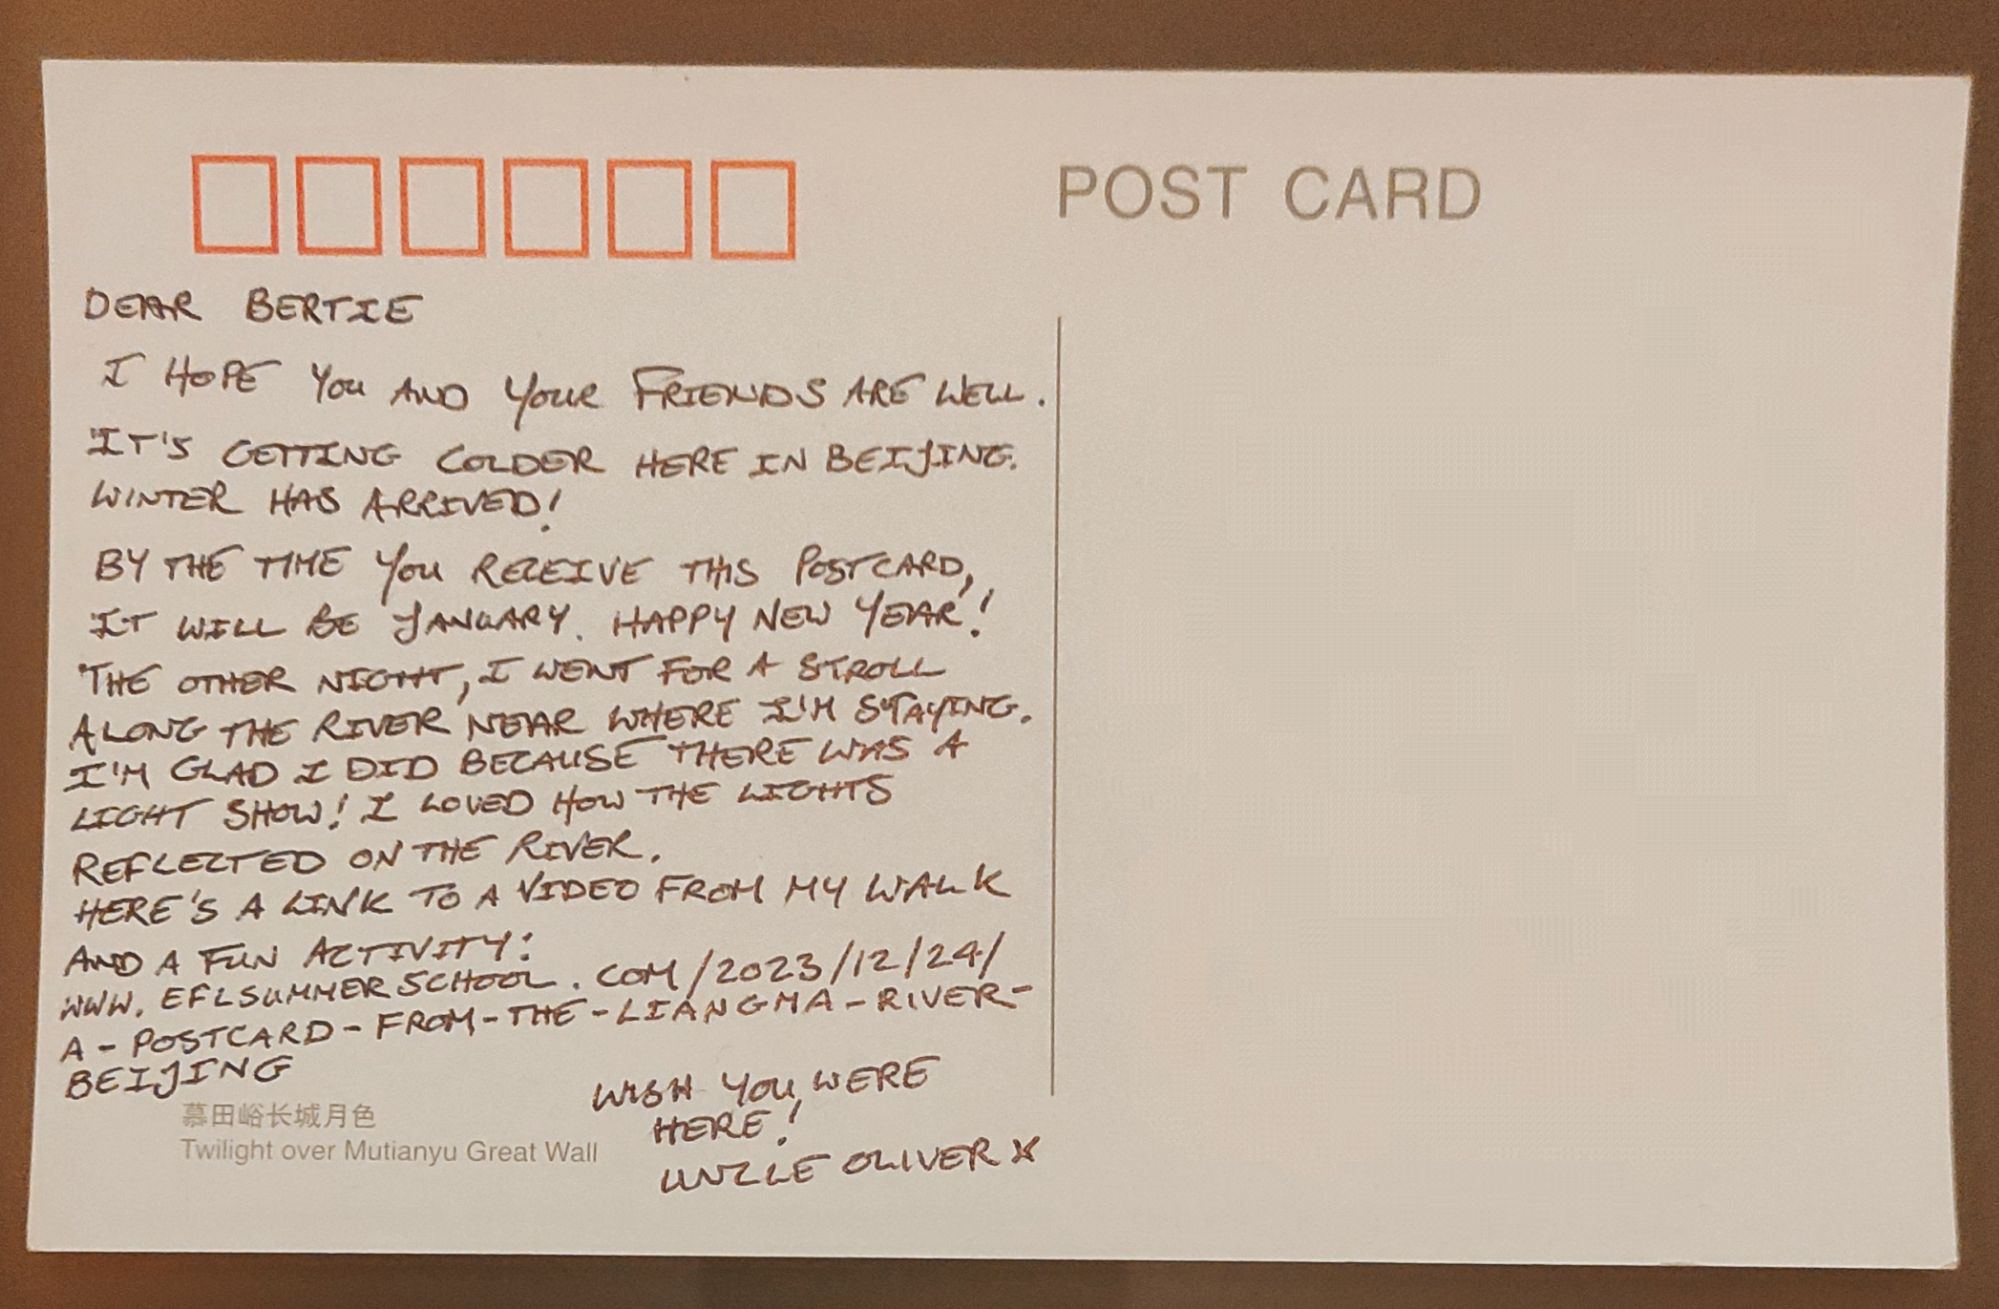 POST CARD
DEAR BERTIE
I HOPE YOU AND YOUR FRIENDS ARE WELL.
IT'S GETTING COLDER HERE IN BEIJING.
WINTER HAS ARRIVED!
BY THE TIME YOU RECEIVE THIS POSTCARD,
IT WILL BE JANUARY. HAPPY NEW YEAR!
THE OTHER NIGHT, I WENT FOR A STROLL
ALONG THE RIVER NEAR WHERE I'M STAYING.
I'M GLAD I DID BECAUSE THERE WAS A
LIGHT SHOW! I LOVED HOW THE LIGHTS
REFLECTED ON THE RIVER.
HERE'S A LINK TO A VIDEO FROM MY WALK
AND A FUN ACTIVITY:
WWW.EFLSUMMERSCHOOL.COM/2023/12/24/
A-POSTCARD-FROM-THE-LIANGMA-RIVER-
BEIJING
WISH YOU WERE
HERE!
UNCLE OLIVER X
慕田峪长城月色
Twilight over Mutianyu Great Wall